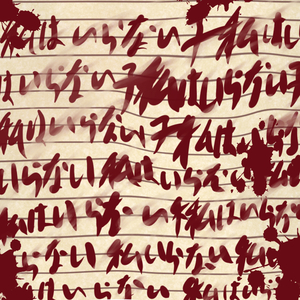 私はいらない子私は
いらない子私はいらない子
私はいらない子私は
らない私はいらない
私はいらない私はいらない
ない私いらない私
らない私はいらない